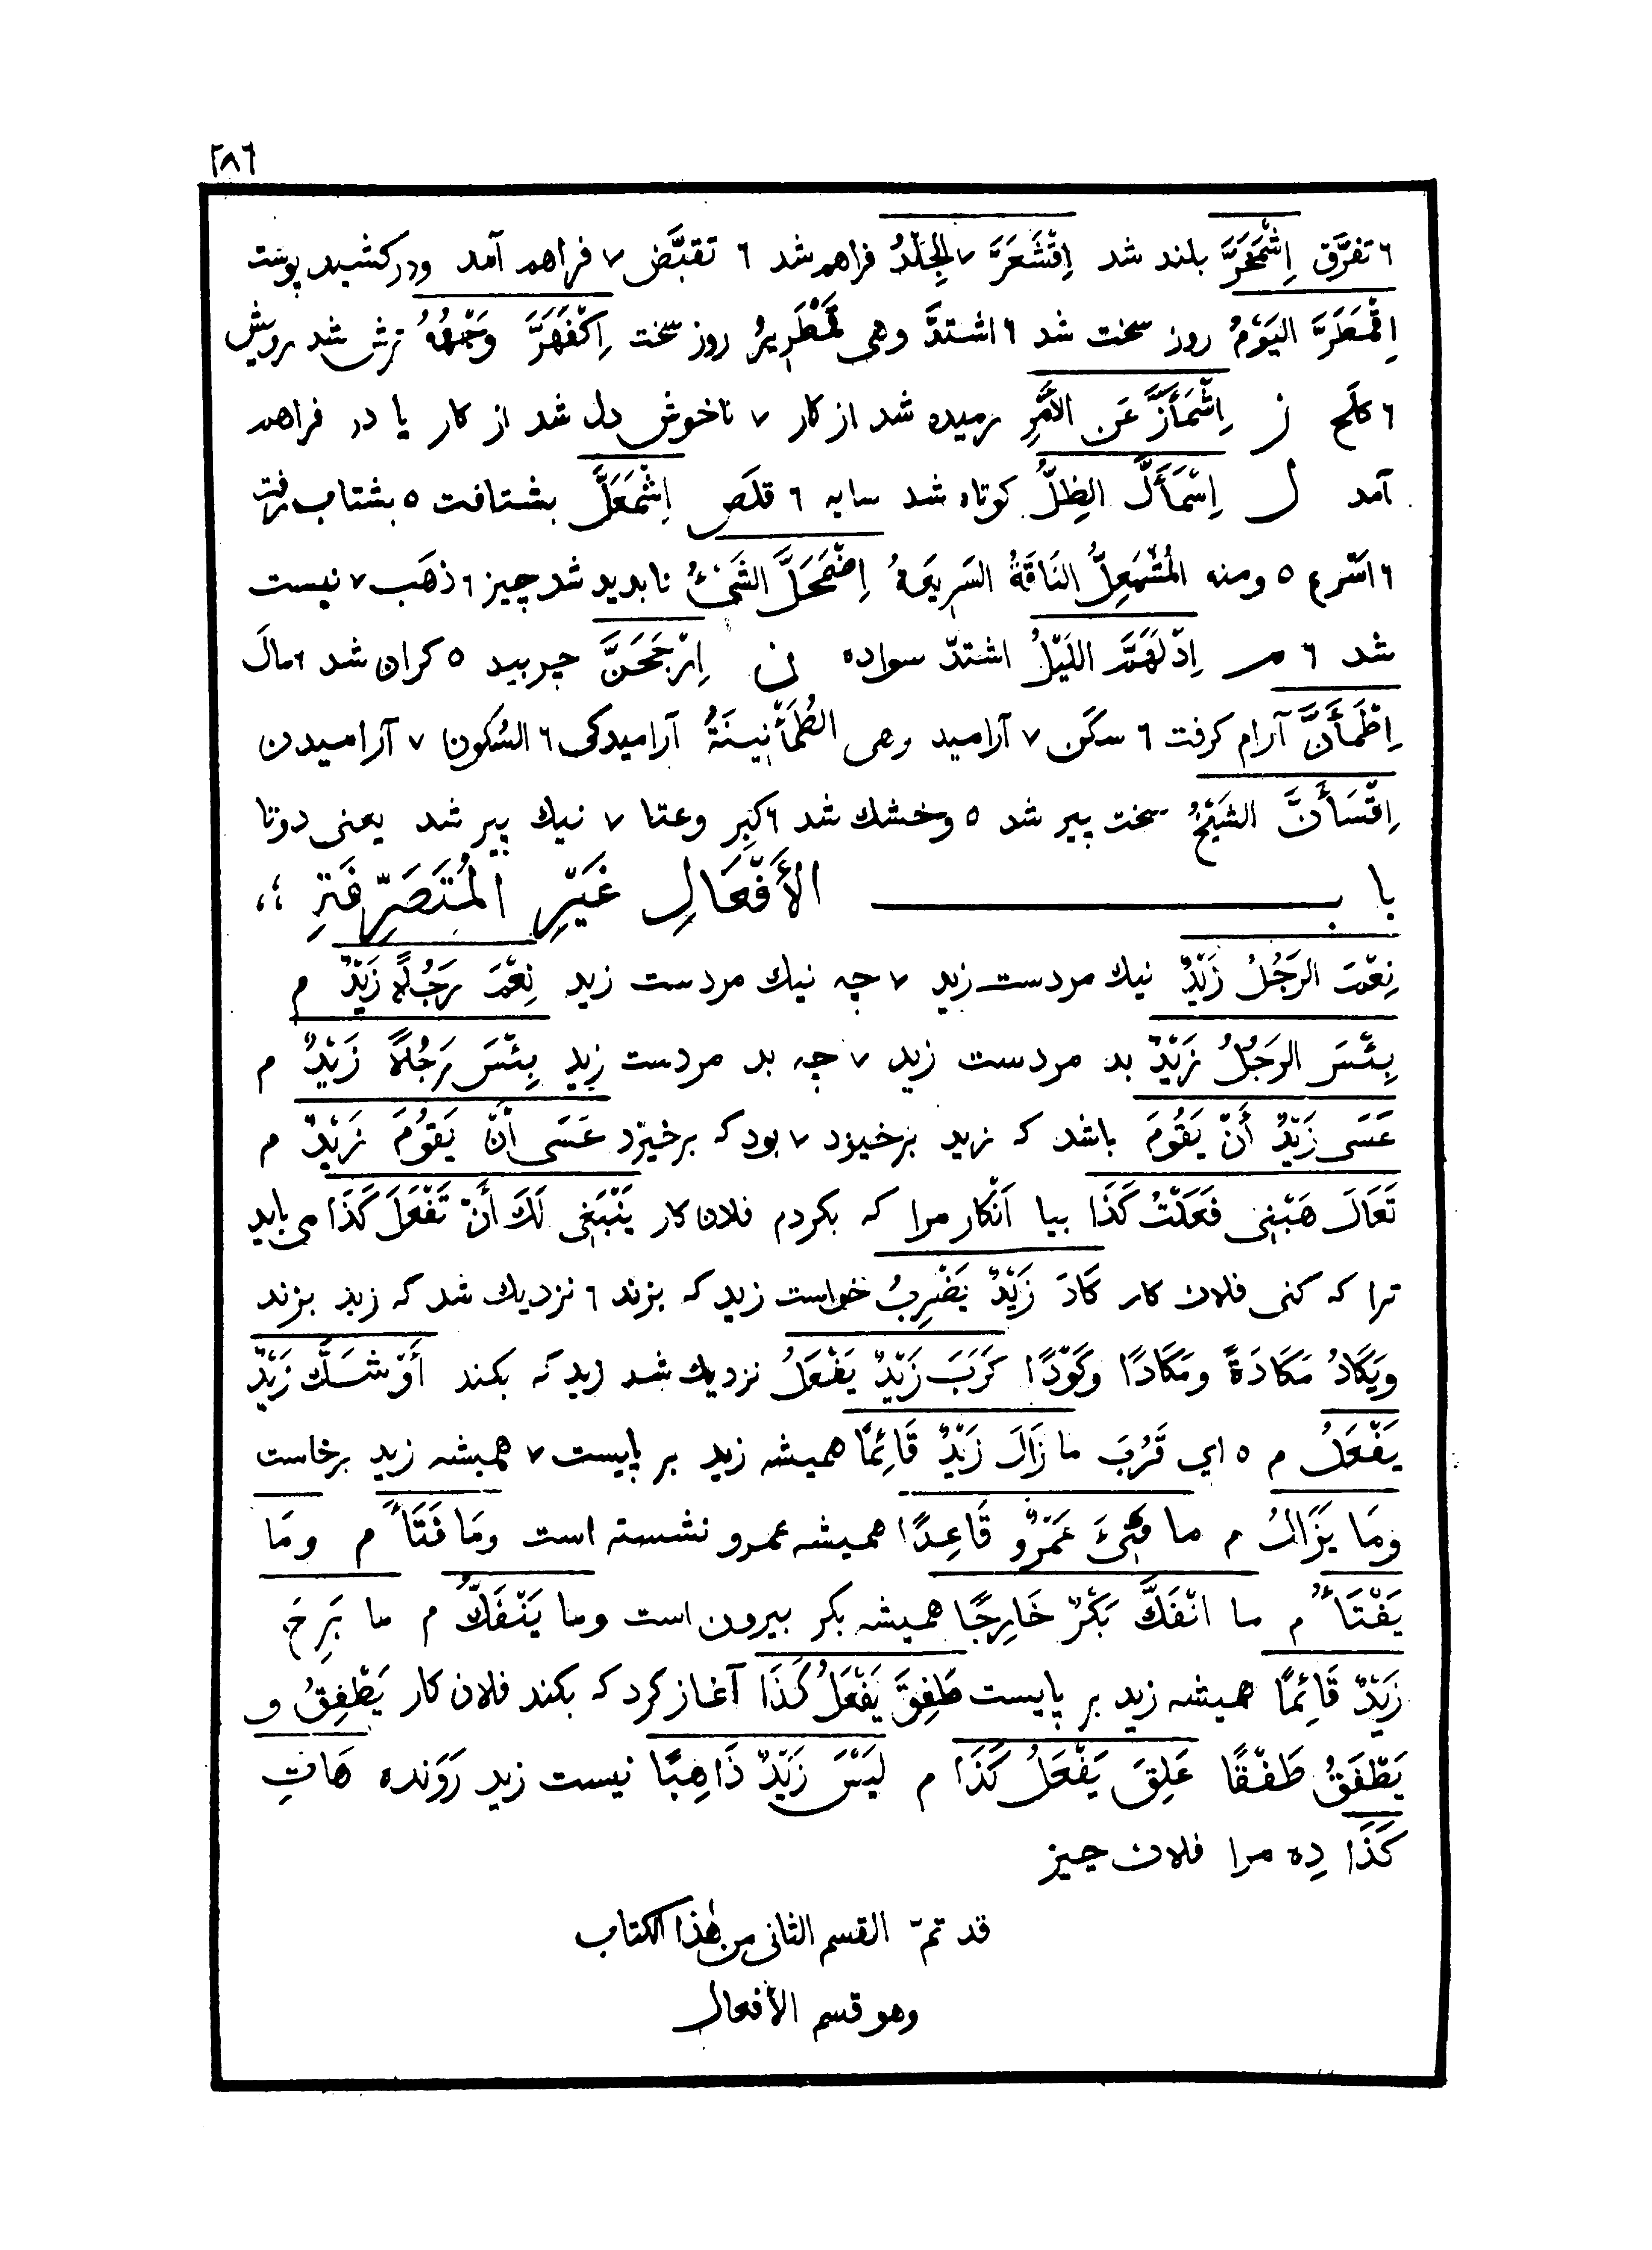 ٢٨٦
٦ تفرَّق اِشْمَخَرَّ بلند شد اِقْشَعَرَّ ٧ الجِلْدُ فراهم شد ٦ تقبَّض ٧ فراهم آمد ودر کشید پوست
اِقْمَطَرَّ اليَوْمُ روز سخت شد ٦ اشتدَّ وهى قَمْطَرِيرُ روز سخت اِكْفَهَرَّ وَجْهُهُ ترش شد رویش
٦ كلَح ز اِشْمَأَزَّ عَن الأَمْرِ رمیده شد از کار ٧ ناخوش دل شد از کار یا در فراهم
آمد ل اِسْمَأَلَّ الظِلُّ کوتاه شد سایه ٦ قلَص اِشْمَعَلَّ بشتافت ٥ بشتاب رفت
٦ اسْرع ٥ ومنه المُشْمَعِلُّ النَاقَةُ السَرِيعَةُ اِضْمَحَلَّ الشَىْءُ نابدید شد چیز ٦ ذهَب ٧ نیست
شد ٦ مـ اِدْلَهَمَّ اللَيْلُ اشتدّ سواده ن اِرْجَحَنَّ چربید ٥ کران شد ٦ مالَ
اِطْمَأَنَّ آرام کرفت ٦ سکَن ٧ آرامید وهى الطُمَأْنِينَةُ آرامیدکى ٦ السُكون ٧ آرامیدن
اِقْسَأَنَّ الشَيْخُ سخت پیر شد ٥ وخشك شد ٦ كبِر وعتا ٧ نیك پیر شد یعنى دوتا
باب الأَفْعَالِ غَيْرِ المُتَصَرِّفَةِ
نِعْمَ الرَجُلُ زَيْدٌ نیك مردست زید ٧ چه نیك مردست زید نِعْمَ رَجُلًا زَيْدٌ م
بِئْسَ الرَجُلُ زَيْدٌ بد مردست زید ٧ چه بد مردست زید بِئْسَ رَجُلًا زَيْدٌ م
عَسَى زَيْدٌ أَنْ يَقُومَ باشد که زید برخیزد ٧ بود که برخیزد عَسَى أَنْ يَقُومَ زَيْدٌ م
تَعَالَ هَبْنِى فَعَلْتُ كَذَا بیا اَنْکار مرا که بکردم فلان کار يَنْبَغِى لَكَ أَنْ تَفْعَلَ كَذَا مى باید
ترا که کنى فلان کار كَادَ زَيْدٌ يَضْرِبُ خواست زید که بزند ٦ نزدیك شد که زید بزند
وَيَكَادُ مَكَادَةً ومَكَادًا وكَوْدًا كَرَبَ زَيْدٌ يَفْعَلُ نزدیك شد زید که بکند أَوْشَكَ زَيْدٌ
يَفْعَلُ م ٥ اي قَرُبَ ما زَالَ زَيْدٌ قَائِمًا همیشه زید بر پایست ٧ همیشه زید برخاست
وَمَا يَزَالُ م ما فَتِىءَ عَمْرٌو قَاعِدًا همیشه عمرو نشسته است ومَا فَتَأَ م ومَا
يَفْتَأُ م ما انْفَكَّ بَكْرٌ خَارِجًا همیشه بکر بیرون است وما يَنْفَكُّ م ما بَرِحَ
زَيْدٌ قَائِمًا همیشه زید بر پایست طَفِقَ يَفْعَلُ كَذَا آغاز کرد که بکند فلان کار يَطْفِقُ و
يَطْفَقُ طَفْقًا عَلِقَ يَفْعَلُ كَذَا م لَيْسَ زَيْدٌ ذَاهِبًا نیست زید رَوَنده هَاتِ
كَذَا دِه مرا فلان چیز
قد تمّ القسم الثانى من هٰذا الكتاب
وهو قسم الأفعال